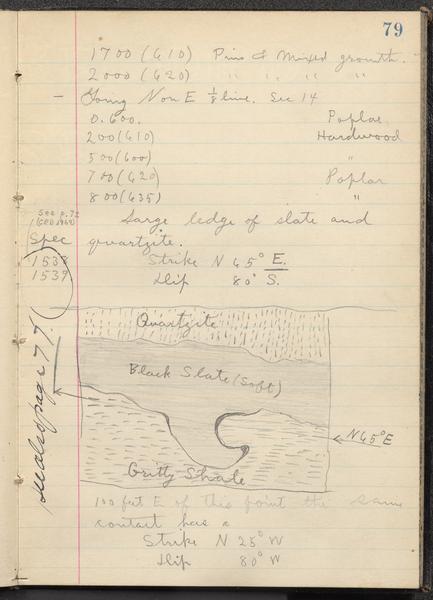 79
1700 (610) Pine & Mixed growth.
2000 (620) " " " "
— Going N on E 1/8 line. Sec 14
0. 600. Poplar
200 (610) Hardwood
500 (600) "
700 (620) Poplar
800 (635) "
See p. 72
(GEO 1969)
Large ledge of slate and
Spec quartzite.
1538 Strike N 65° E.
1539 Dip 80° S.
See also page 77.
Quartzite
Black Slate (Soft)
N 65° E
Gritty Shale
100 feet E of this point the same
contact has a
Strike N 25° W
Dip 80° W